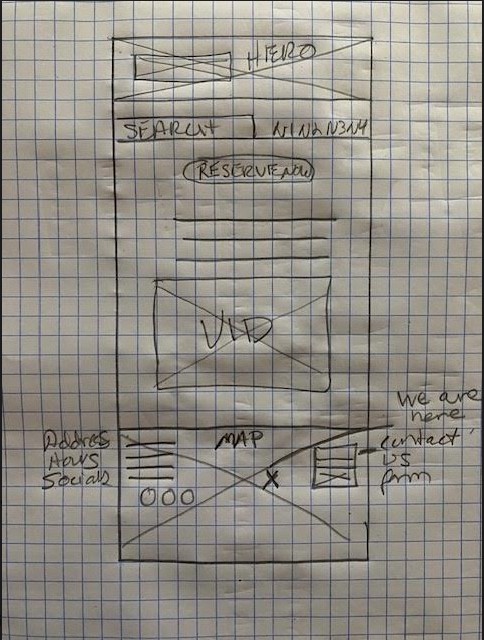 HERO
SEARCH N1 N2 N3 N4
RESERVE NOW
VID
We are
here
MAP
Address
Hours
Socials
X
contact
us
form